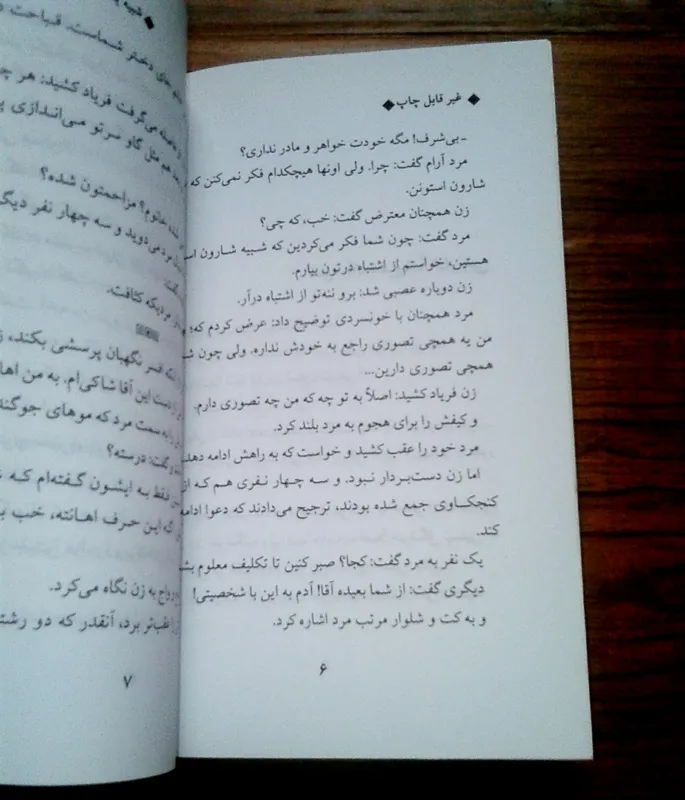 ◆ غیر قابل چاپ ◆
ـ بی‌شرف! مگه خودت خواهر و مادر نداری؟
مرد آرام گفت: چرا. ولی اونها هیچکدام فکر نمی‌کنن که
شارون استونن.
زن همچنان معترض گفت: خب، که چی؟
مرد گفت: چون شما فکر می‌کردین که شبیه شارون
هستین، خواستم از اشتباه درتون بیارم.
زن دوباره عصبی شد: برو ننه‌تو از اشتباه درآر.
مرد همچنان با خونسردی توضیح داد: عرض کردم که؛
من یه همچی تصوری راجع به خودش نداره. ولی چون
همچی تصوری دارین...
زن فریاد کشید: اصلاً به تو چه که من چه تصوری دارم.
و کیفش را برای هجوم به مرد بلند کرد.
مرد خود را عقب کشید و خواست که به راهش ادامه دهد.
اما زن دست‌بردار نبود. و سه چهار نفری هم که از
کنجکاوی جمع شده بودند، ترجیح می‌دادند که دعوا ادامه
کند.
یک نفر به مرد گفت: کجا؟ صبر کنین تا تکلیف معلوم
دیگری گفت: از شما بعیده آقا! آدم به این با شخصیتی!
و به کت و شلوار مرتب مرد اشاره کرد.
۶
◆ شبیه
دختر شماست. قباحت
می‌گرفت فریاد کشید: هر
هم مثل گاو سرتو می‌اندازی
خانوم؟ مزاحمتون شده؟
مرد می‌دوید و سه چهار نفر
مرتیکه کثافت.
افسر نگهبان پرسشی بکند،
از دست این آقا شاکی‌ام. به من
به سمت مرد که موهای
گفت: درسته؟
فقط به ایشون گفته‌ام که
که این حرف اهانته، خب
به زن نگاه می‌کرد.
عقب‌تر برد، آنقدر که دو
۷